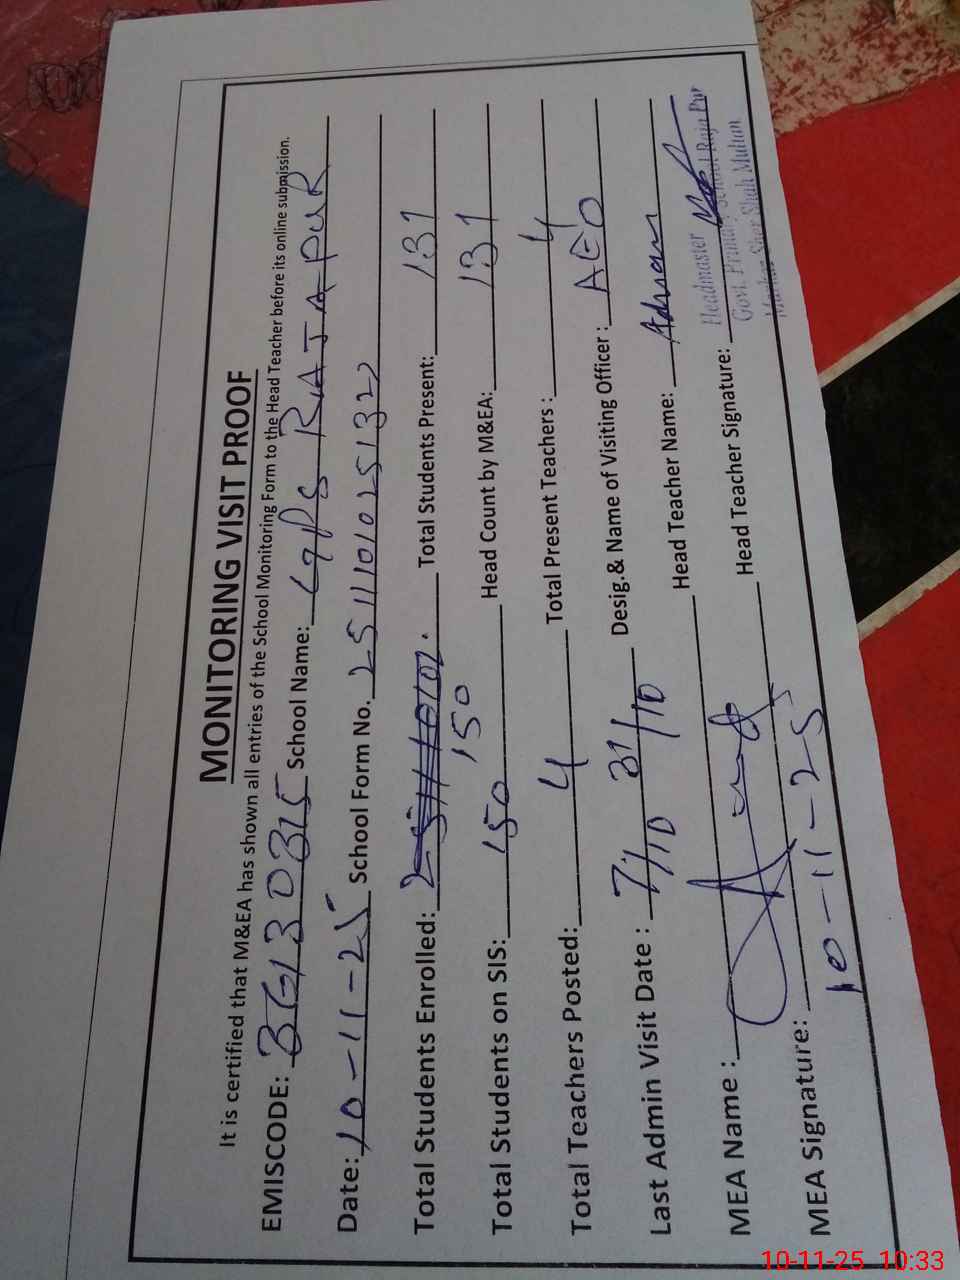 MONITORING VISIT PROOF
It is certified that M&EA has shown all entries of the School Monitoring Form to the Head Teacher before its online submission.
EMISCODE: 3G130315 School Name: GPS RAJA PUR
Date: 10-11-25 School Form No. 25111010251322
Total Students Enrolled: 150 Total Students Present: 131
Total Students on SIS: 150 Head Count by M&EA: 131
Total Teachers Posted: 4 Total Present Teachers: 4
Last Admin Visit Date: 7/10 31/10 Desig.& Name of Visiting Officer: AEO
MEA Name: Head Teacher Name: Adnan
MEA Signature: Head Teacher Signature:
10-11-25
Headmaster
Govt. Primary School Raja Pur
Markaz Sher Shah Multan
10-11-25 10:33